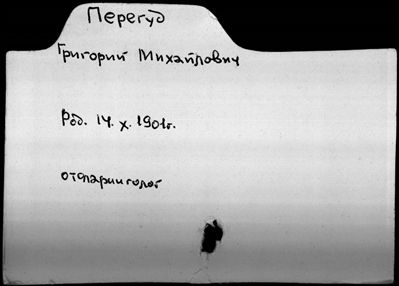 Перегуд
Григорий Михайлович
Род. 14. X. 1901г.
отоларинголог